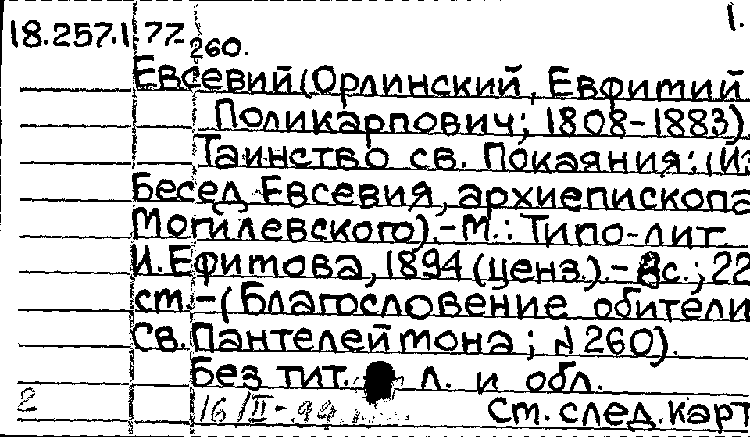 1.
18.257.1.77-260.
Евсевий (Орлинский, Евфимий
Поликарпович; 1808-1883).
Таинство св. Покаяния: (Из
Бесед Евсевия, архиепископа
Могилевского).-М.: Типо-лит.
И. Ефимова, 1894 (ценз.).- 8с.; 22
см.-(Благословение обители
Св. Пантелеймона; №260).
Без тит. л. и обл.
2
16/II-99 См. след. карт